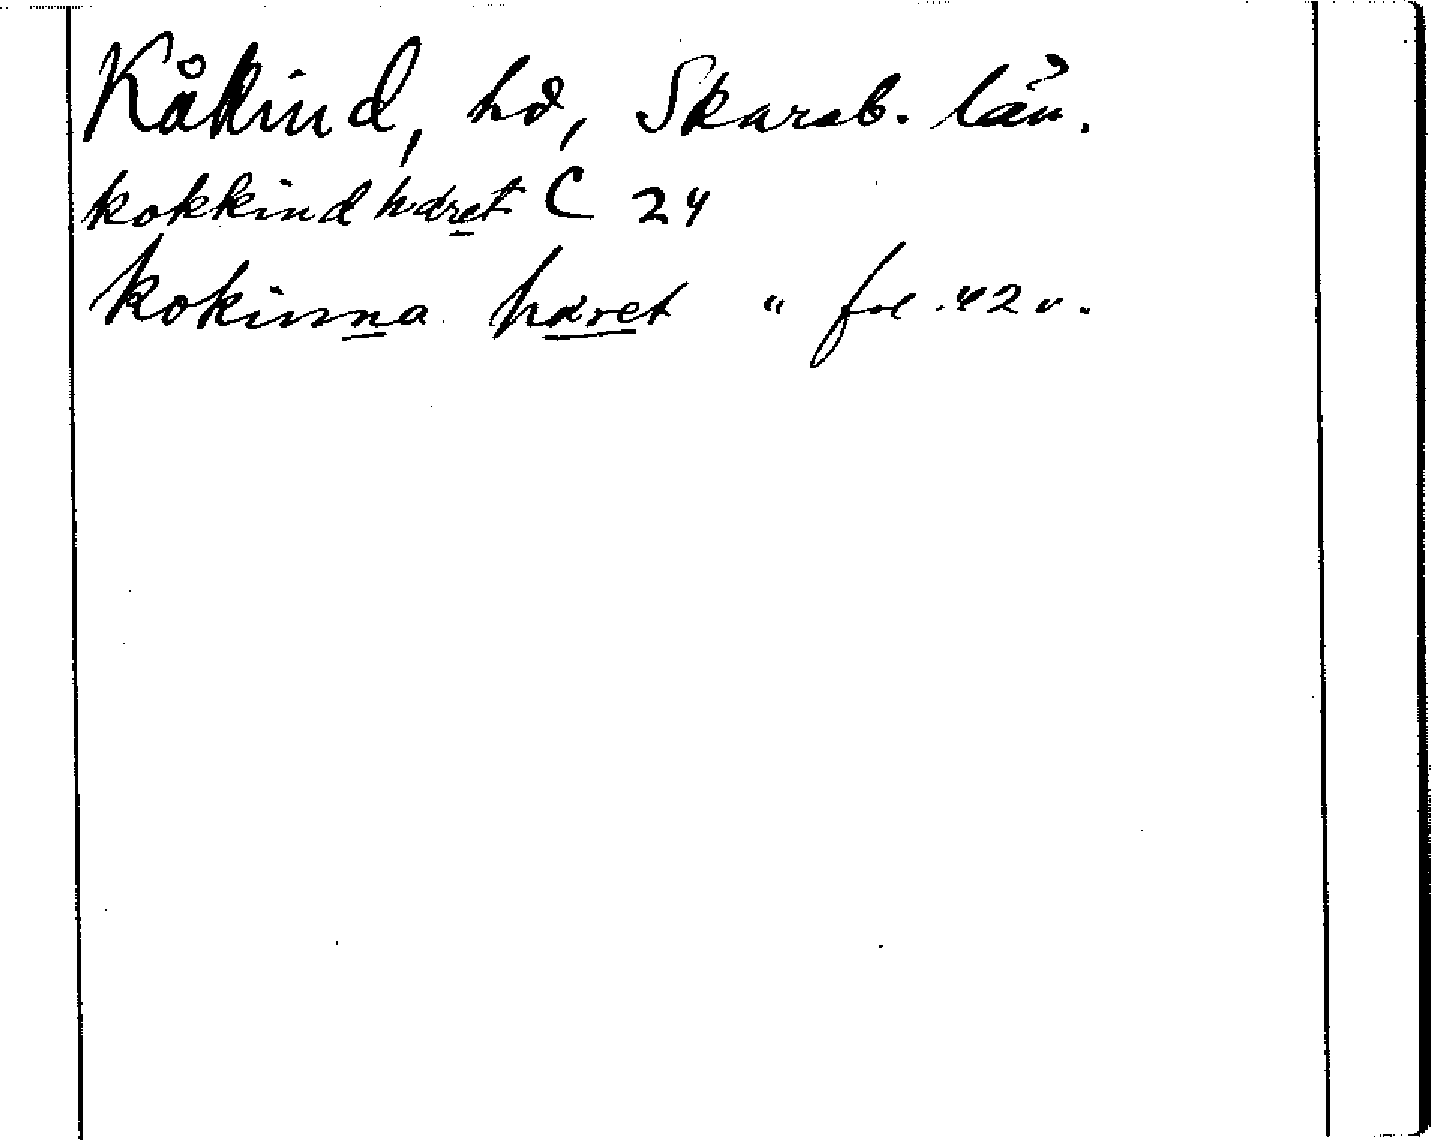 Kåkind, hd, Skarab. län.
kokkind hdret C 24
kokinna hdret " fol. 42 v.